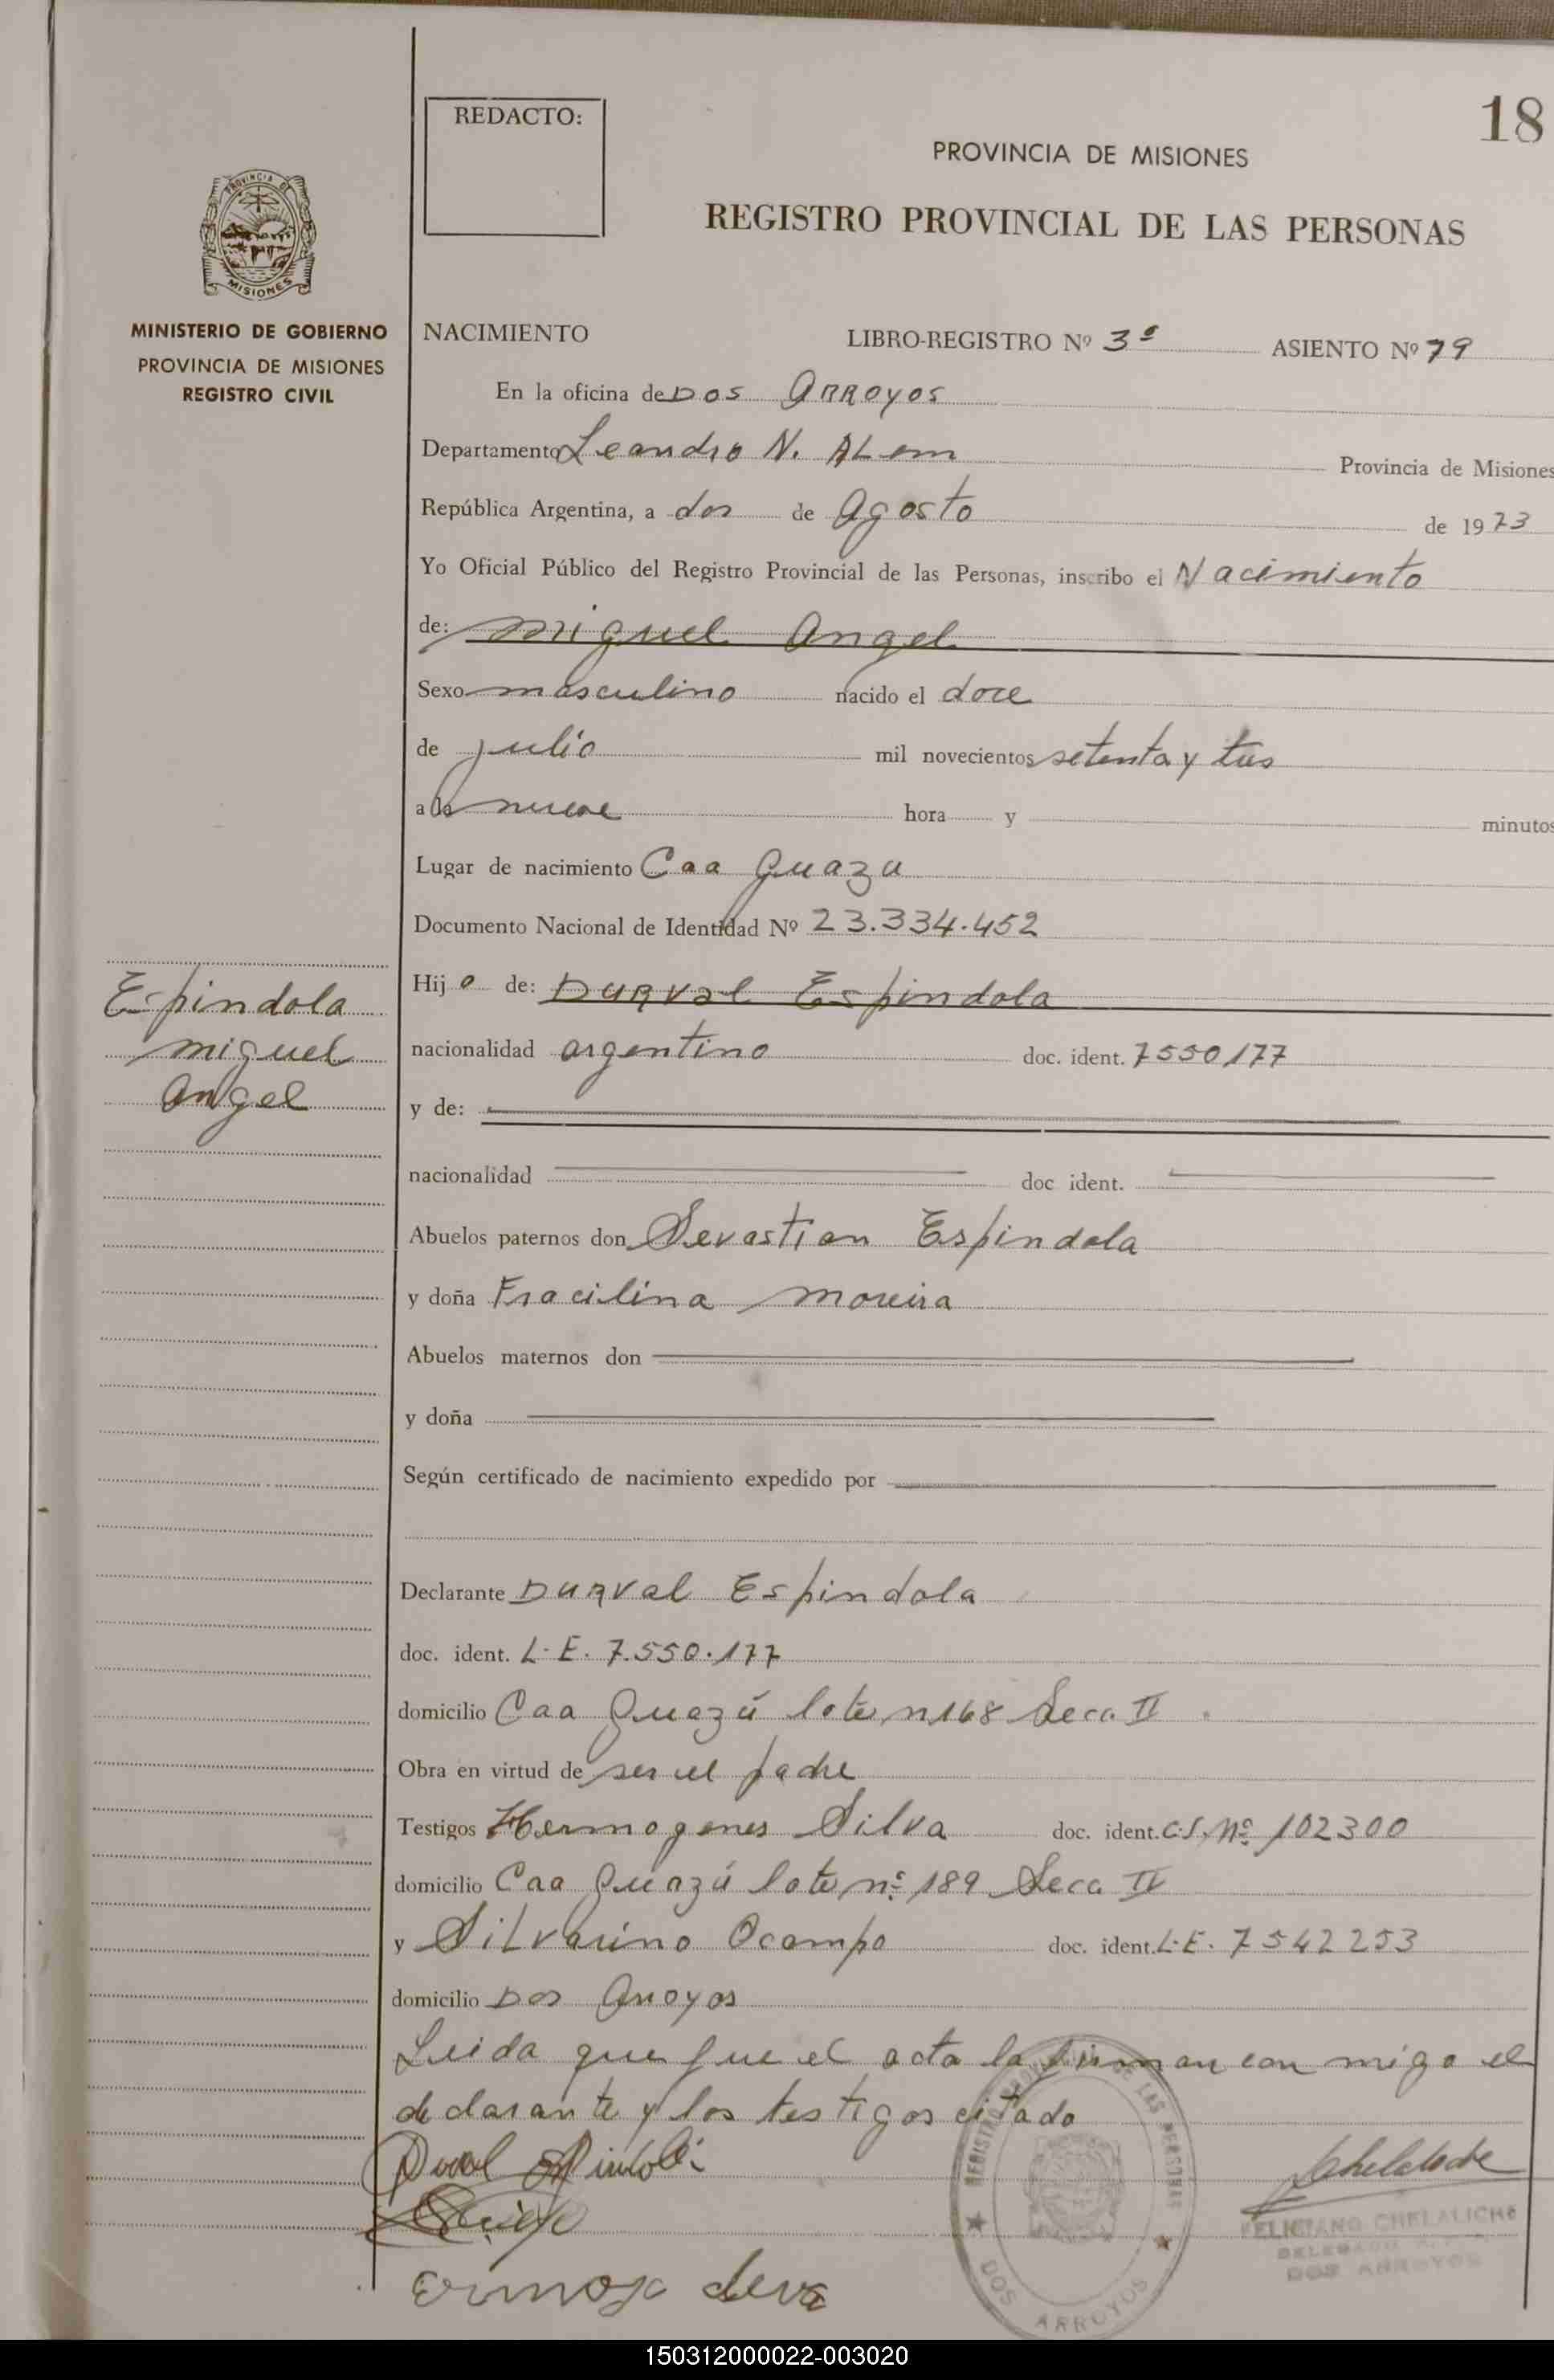 18
REDACTO:
PROVINCIA DE MISIONES
REGISTRO PROVINCIAL DE LAS PERSONAS
PROVINCIA DE
MISIONES
MINISTERIO DE GOBIERNO
PROVINCIA DE MISIONES
REGISTRO CIVIL
NACIMIENTO LIBRO-REGISTRO Nº 3º ASIENTO Nº 79
En la oficina de Dos Arroyos
Departamento Leandro N. ALem Provincia de Misiones
República Argentina, a dos de Agosto de 1973
Yo Oficial Público del Registro Provincial de las Personas, inscribo el Nacimiento
de: Miguel Angel
Sexo masculino nacido el doce
de julio mil novecientos setenta y tres
a la nueve hora y minutos
Lugar de nacimiento Caa Guazu
Documento Nacional de Identidad Nº 23.334.452
Espindola
Miguel
Angel
Hijo de: Durval Espindola
nacionalidad argentino doc. ident. 7550177
y de:
nacionalidad doc ident.
Abuelos paternos don Sevastian Espindola
y doña Fracilina Moreira
Abuelos maternos don
y doña
Según certificado de nacimiento expedido por
Declarante Durval Espindola
doc. ident. L.E. 7.550.177
domicilio Caa Guazú lote n 168 Secc. II
Obra en virtud de ser el padre
Testigos Hermogenes Silva doc. ident. C.I. Nº 102300
domicilio Caa Guazú lote nº 189 Secc II
y Silvarino Ocampo doc. ident. L.E. 7542253
domicilio Dos Arroyos
Leida que fue el acta la firman con migo el
declarante y los testigos citado
REGISTRO DE LAS PERSONAS
DOS ARROYOS
FELICIANO CHELALICHE
DOS ARROYOS
150312000022-003020